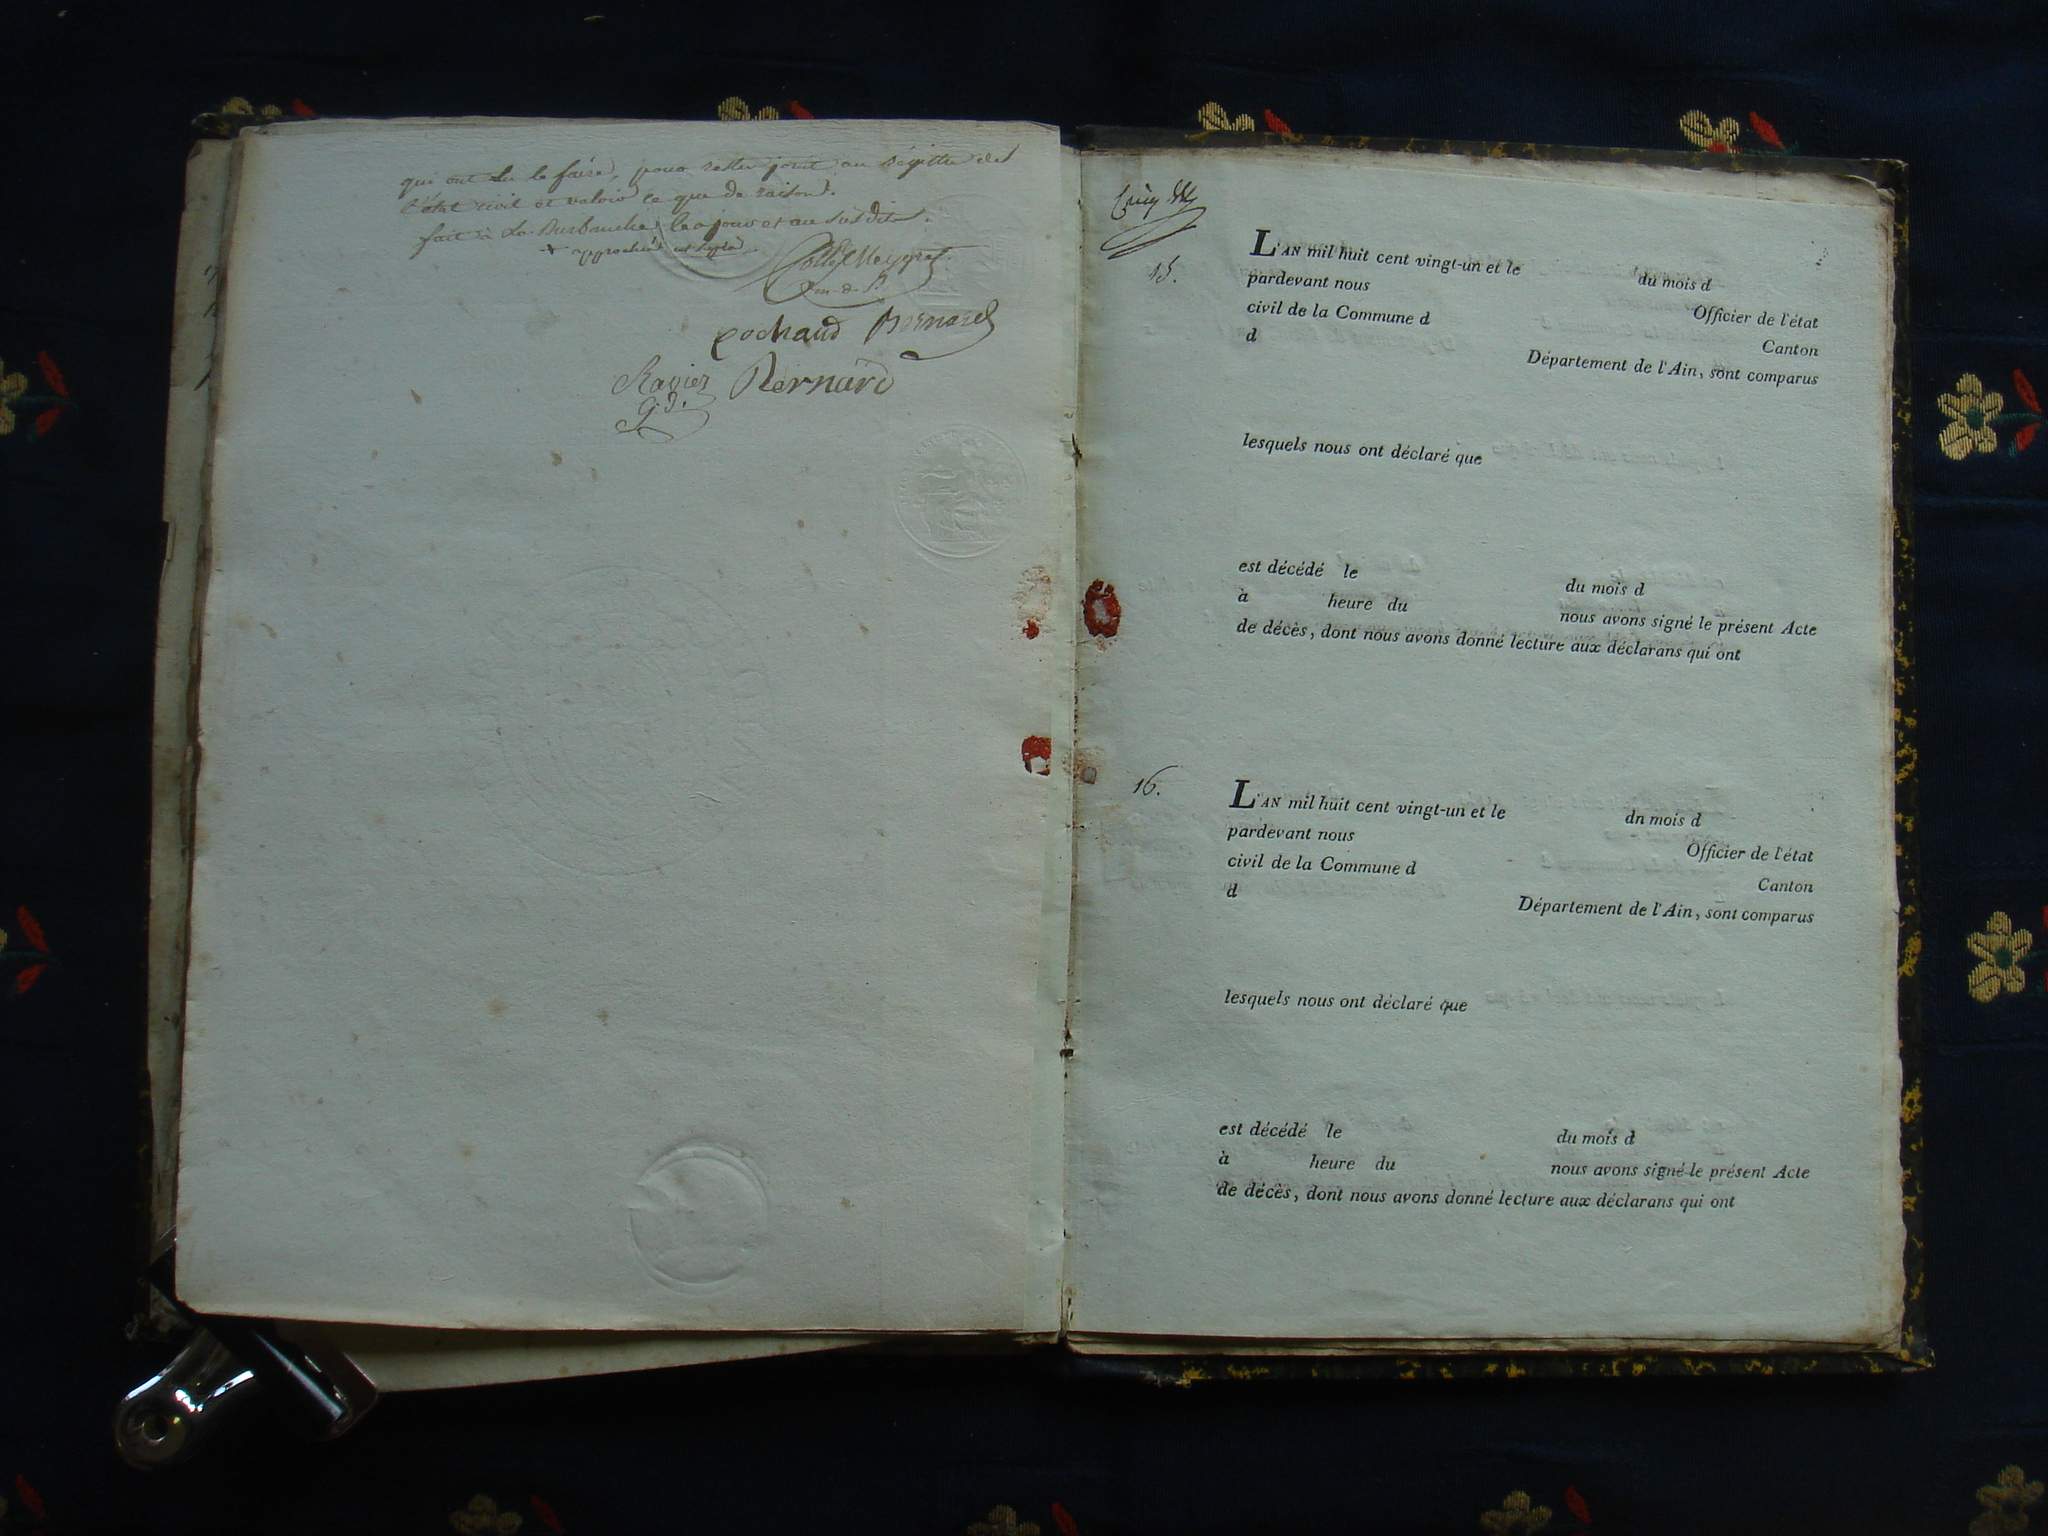 qui ont su le faire, pour rester joint au régistre de
l'état civil et valoir ce que de raison.
fait à La Burbanche les jour et an susdits.
Cochaud Bernard
Ravier Bernard
G.d.
Cinq
15.
L'AN mil huit cent vingt-un et le du mois d
pardevant nous Officier de l'état
civil de la Commune d Canton
d Département de l'Ain, sont comparus
lesquels nous ont déclaré que
est décédé le du mois d
à heure du nous avons signé le présent Acte
de décès, dont nous avons donné lecture aux déclarans qui ont
16.
L'AN mil huit cent vingt-un et le dn mois d
pardevant nous Officier de l'état
civil de la Commune d Canton
d Département de l'Ain, sont comparus
lesquels nous ont déclaré que
est décédé le du mois d
à heure du nous avons signé le présent Acte
de décès, dont nous avons donné lecture aux déclarans qui ont